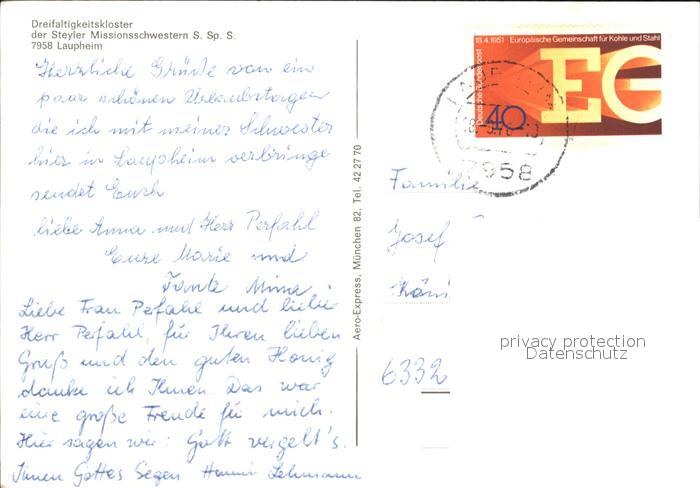 Dreifaltigkeitskloster
der Steyler Missionsschwestern S. Sp. S.
7958 Laupheim
Herzliche Grüße von ein
paar schönen Urlaubstagen
die ich mit meiner Schwester
hier in Laupheim verbringe
sendet Euch
liebe Anna und Herr Perfahl
Eure Marie und
Tante Mina
Liebe Frau Pefahl und lieber
Herr Perfahl, für Ihren lieben
Gruß und den guten Honig
danke ich Ihnen. Das war
eine große Freude für mich.
Hier sagen wir: Gott vergelt's.
Ihnen Gottes Segen Lehmann
Aero-Express, München 82, Tel. 42 27 70
18.4.1951 Europäische Gemeinschaft für Kohle und Stahl
Deutsche Bundespost
40
EG
7958
Familie
Josef
6332
privacy protection
Datenschutz